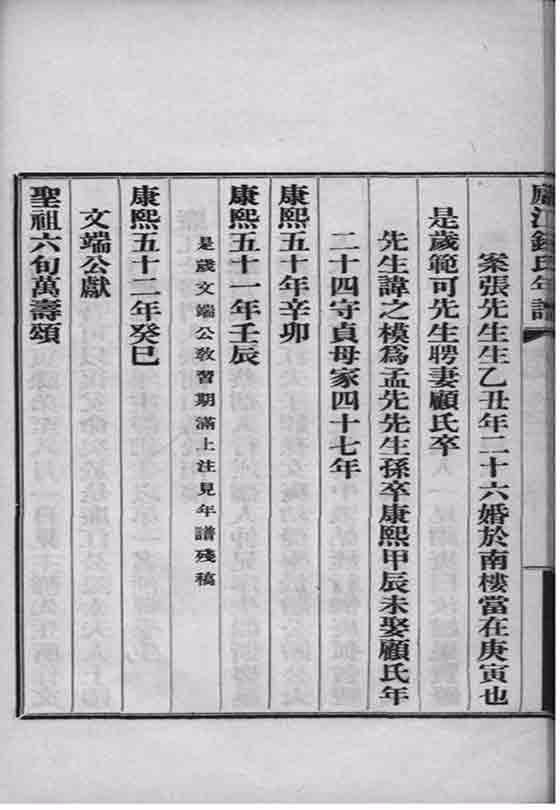 廬江錢氏年譜
案張先生生乙丑年二十六婚於南樓當在庚寅也
是歲範可先生聘妻顧氏卒
先生諱之模爲孟先先生孫卒康熙甲辰未娶顧氏年
二十四守貞母家四十七年
康熙五十年辛卯
康熙五十一年壬辰
是歲文端公教習期滿上注見年譜殘稿
康熙五十二年癸巳
文端公獻
聖祖六旬萬壽頌